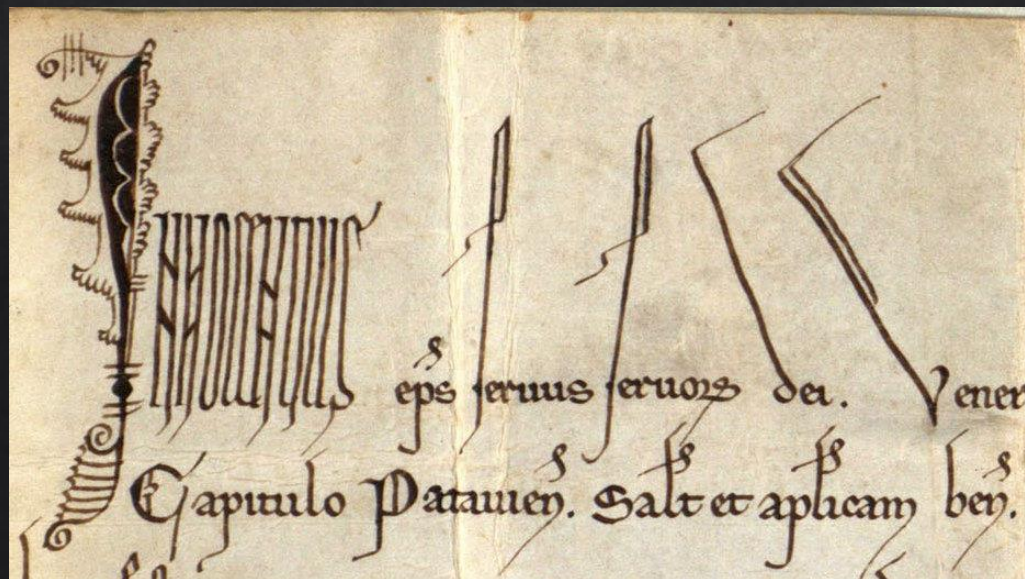 Innocentius eps seruus seruorꝫ dei. Vener
Capitulo Patauien. Salt et aplicam ben.